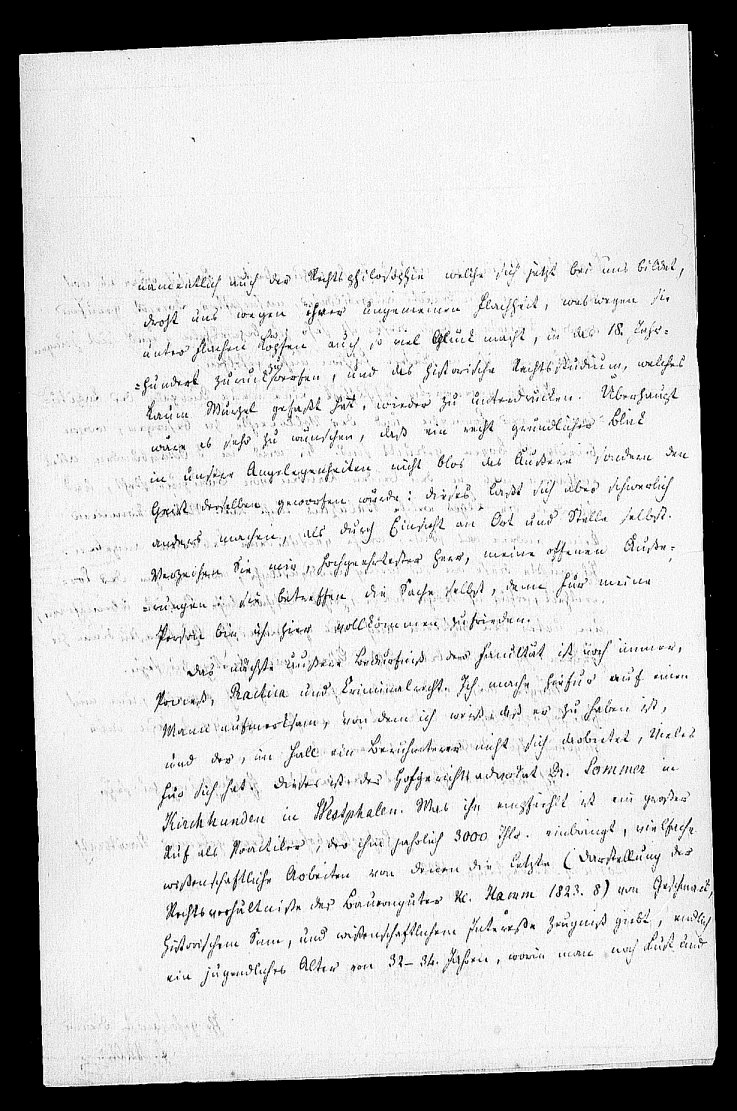 namentlich auch der Rechtsphilosophie welche sich jetzt bei uns bildet,
droht uns wegen ihrer ungemeinen Flachheit, weswegen sie
unter flachen Köpfen auch so viel Glück macht, in das 18. Jahr-
=hundert zurückzuwerfen, und das historische Rechtsstudium, welches
kaum Wurzel gefaßt hat, wieder zu unterdrücken. Überhaupt
wäre es sehr zu wünschen, daß ein recht gründlicher Blick
in unsere Angelegenheiten nicht blos das Äußere sondern den
Geist derselben geworfen würde: dieses läßt sich aber schwerlich
anders machen, als durch Einsicht an Ort und Stelle selbst.
Verzeihen Sie mir, hochgeehrtester Herr, meine offenen Äuße-
=rungen: sie betreffen die Sache selbst, denn für meine
Person bin ich hier vollkommen zufrieden.
Das nächste äußere Bedürfniß der Facultät ist noch immer,
Proceß, Practica und Criminalrecht. Ich mache hiefür auf einen
Mann aufmerksam, von dem ich weiß, daß er zu haben ist,
und der, im Fall ein Berühmterer nicht sich darbietet, Vieles
für sich hat. Dieses ist der Hofgerichtsadvokat Dr. Sommer in
Kirchhunden in Westphalen. Was ihn empfiehlt ist ein großer
Ruf als Practiker, der ihm jährlich 3000 Thlr. einbringt, vielfache
wissenschaftliche Arbeiten von denen die letzte (Darstellung der
Rechtsverhältniße der Bauerngüter etc. Hamm 1823. 8) von Geschmack,
historischem Sinn, und wissenschaftlichem Intereße Zeugniß giebt, endlich
ein jugendliches Alter von 32-34. Jahren, worin man noch Lust und